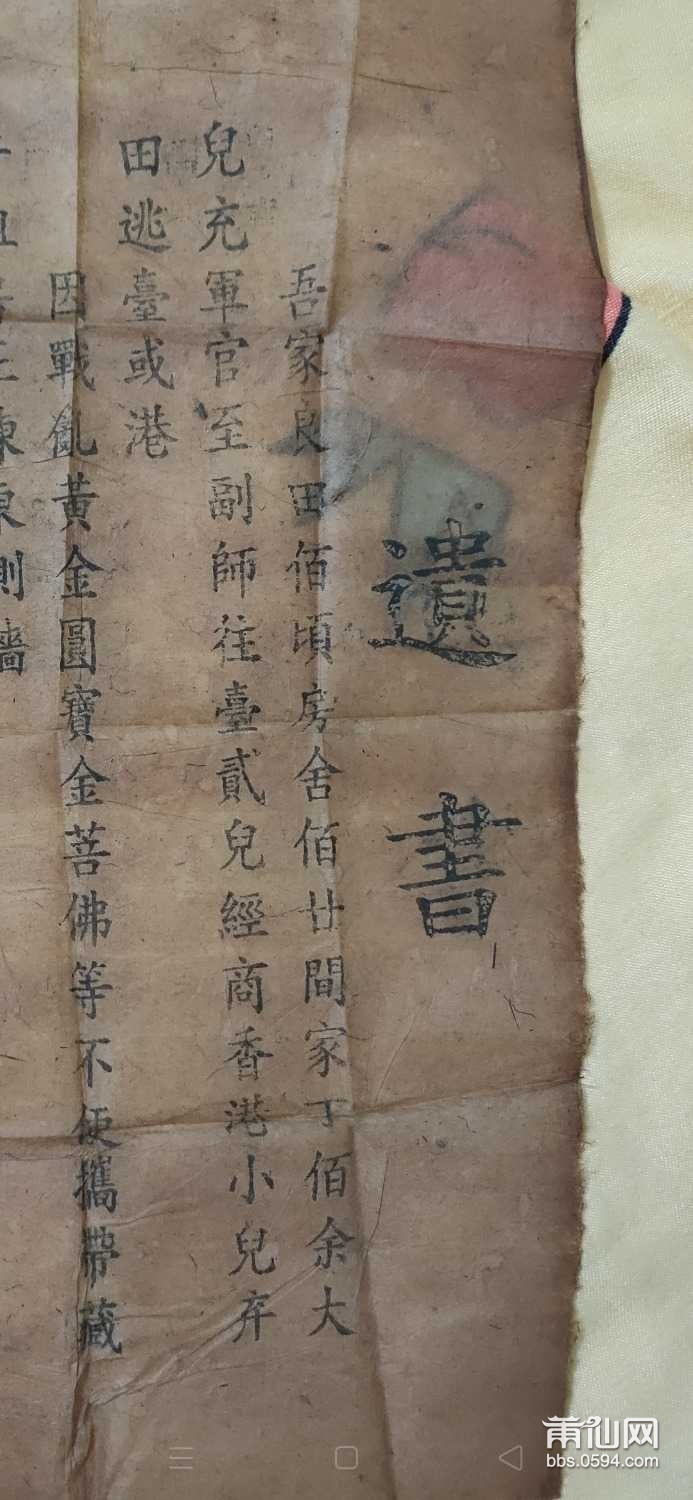 遺書
吾家良田佰頃房舍佰廿間家丁佰余大
兒充軍官至副師往臺貳兒經商香港小兒弃
田逃臺或港
因戰亂黃金圓寶金菩佛等不便攜帶藏
東側牆
莆仙网
bbs.0594.com